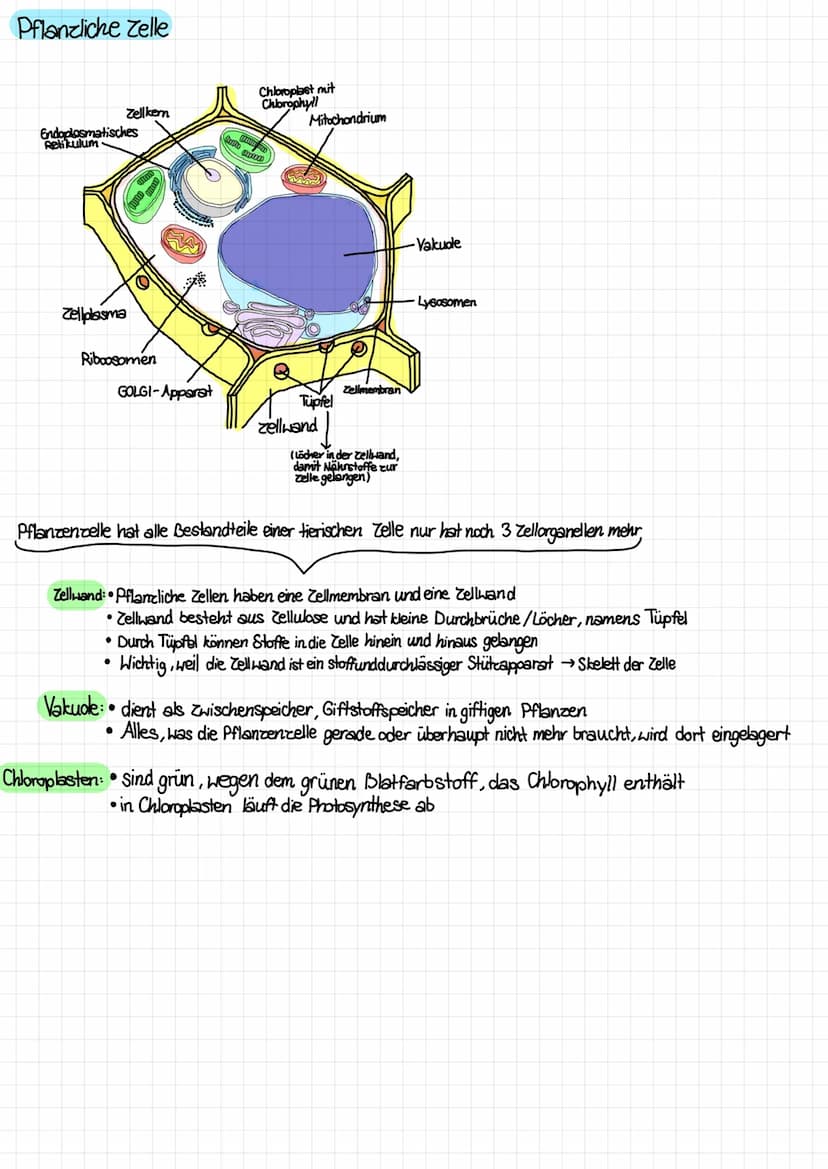 Pflanzliche Zelle
Chloroplast mit
Chlorophyll
Zellkern
Mitochondrium
Endoplasmatisches
Retikulum
Vakuole
Lysosomen
Zellplasma
Ribosomen
GOLGI-Apparat
Zellmembran
Tüpfel
Zellwand
(Löcher in der Zellwand,
damit Nährstoffe zur
Zelle gelangen)
Pflanzenzelle hat alle Bestandteile einer tierischen Zelle nur hat noch 3 Zellorganellen mehr
Zellwand: • Pflanzliche Zellen haben eine Zellmembran und eine Zellwand
• Zellwand besteht aus Zellulose und hat kleine Durchbrüche/Löcher, namens Tüpfel
• Durch Tüpfel können Stoffe in die Zelle hinein und hinaus gelangen
• Wichtig, weil die Zellwand ist ein stoffunddurchlässiger Stützapparat → Skelett der Zelle
Vakuole: • dient als Zwischenspeicher, Giftstoffspeicher in giftigen Pflanzen
• Alles, was die Pflanzenzelle gerade oder überhaupt nicht mehr braucht, wird dort eingelagert
Chloroplasten: • sind grün, wegen dem grünen Blattfarbstoff, das Chlorophyll enthält
• in Chloroplasten läuft die Photosynthese ab